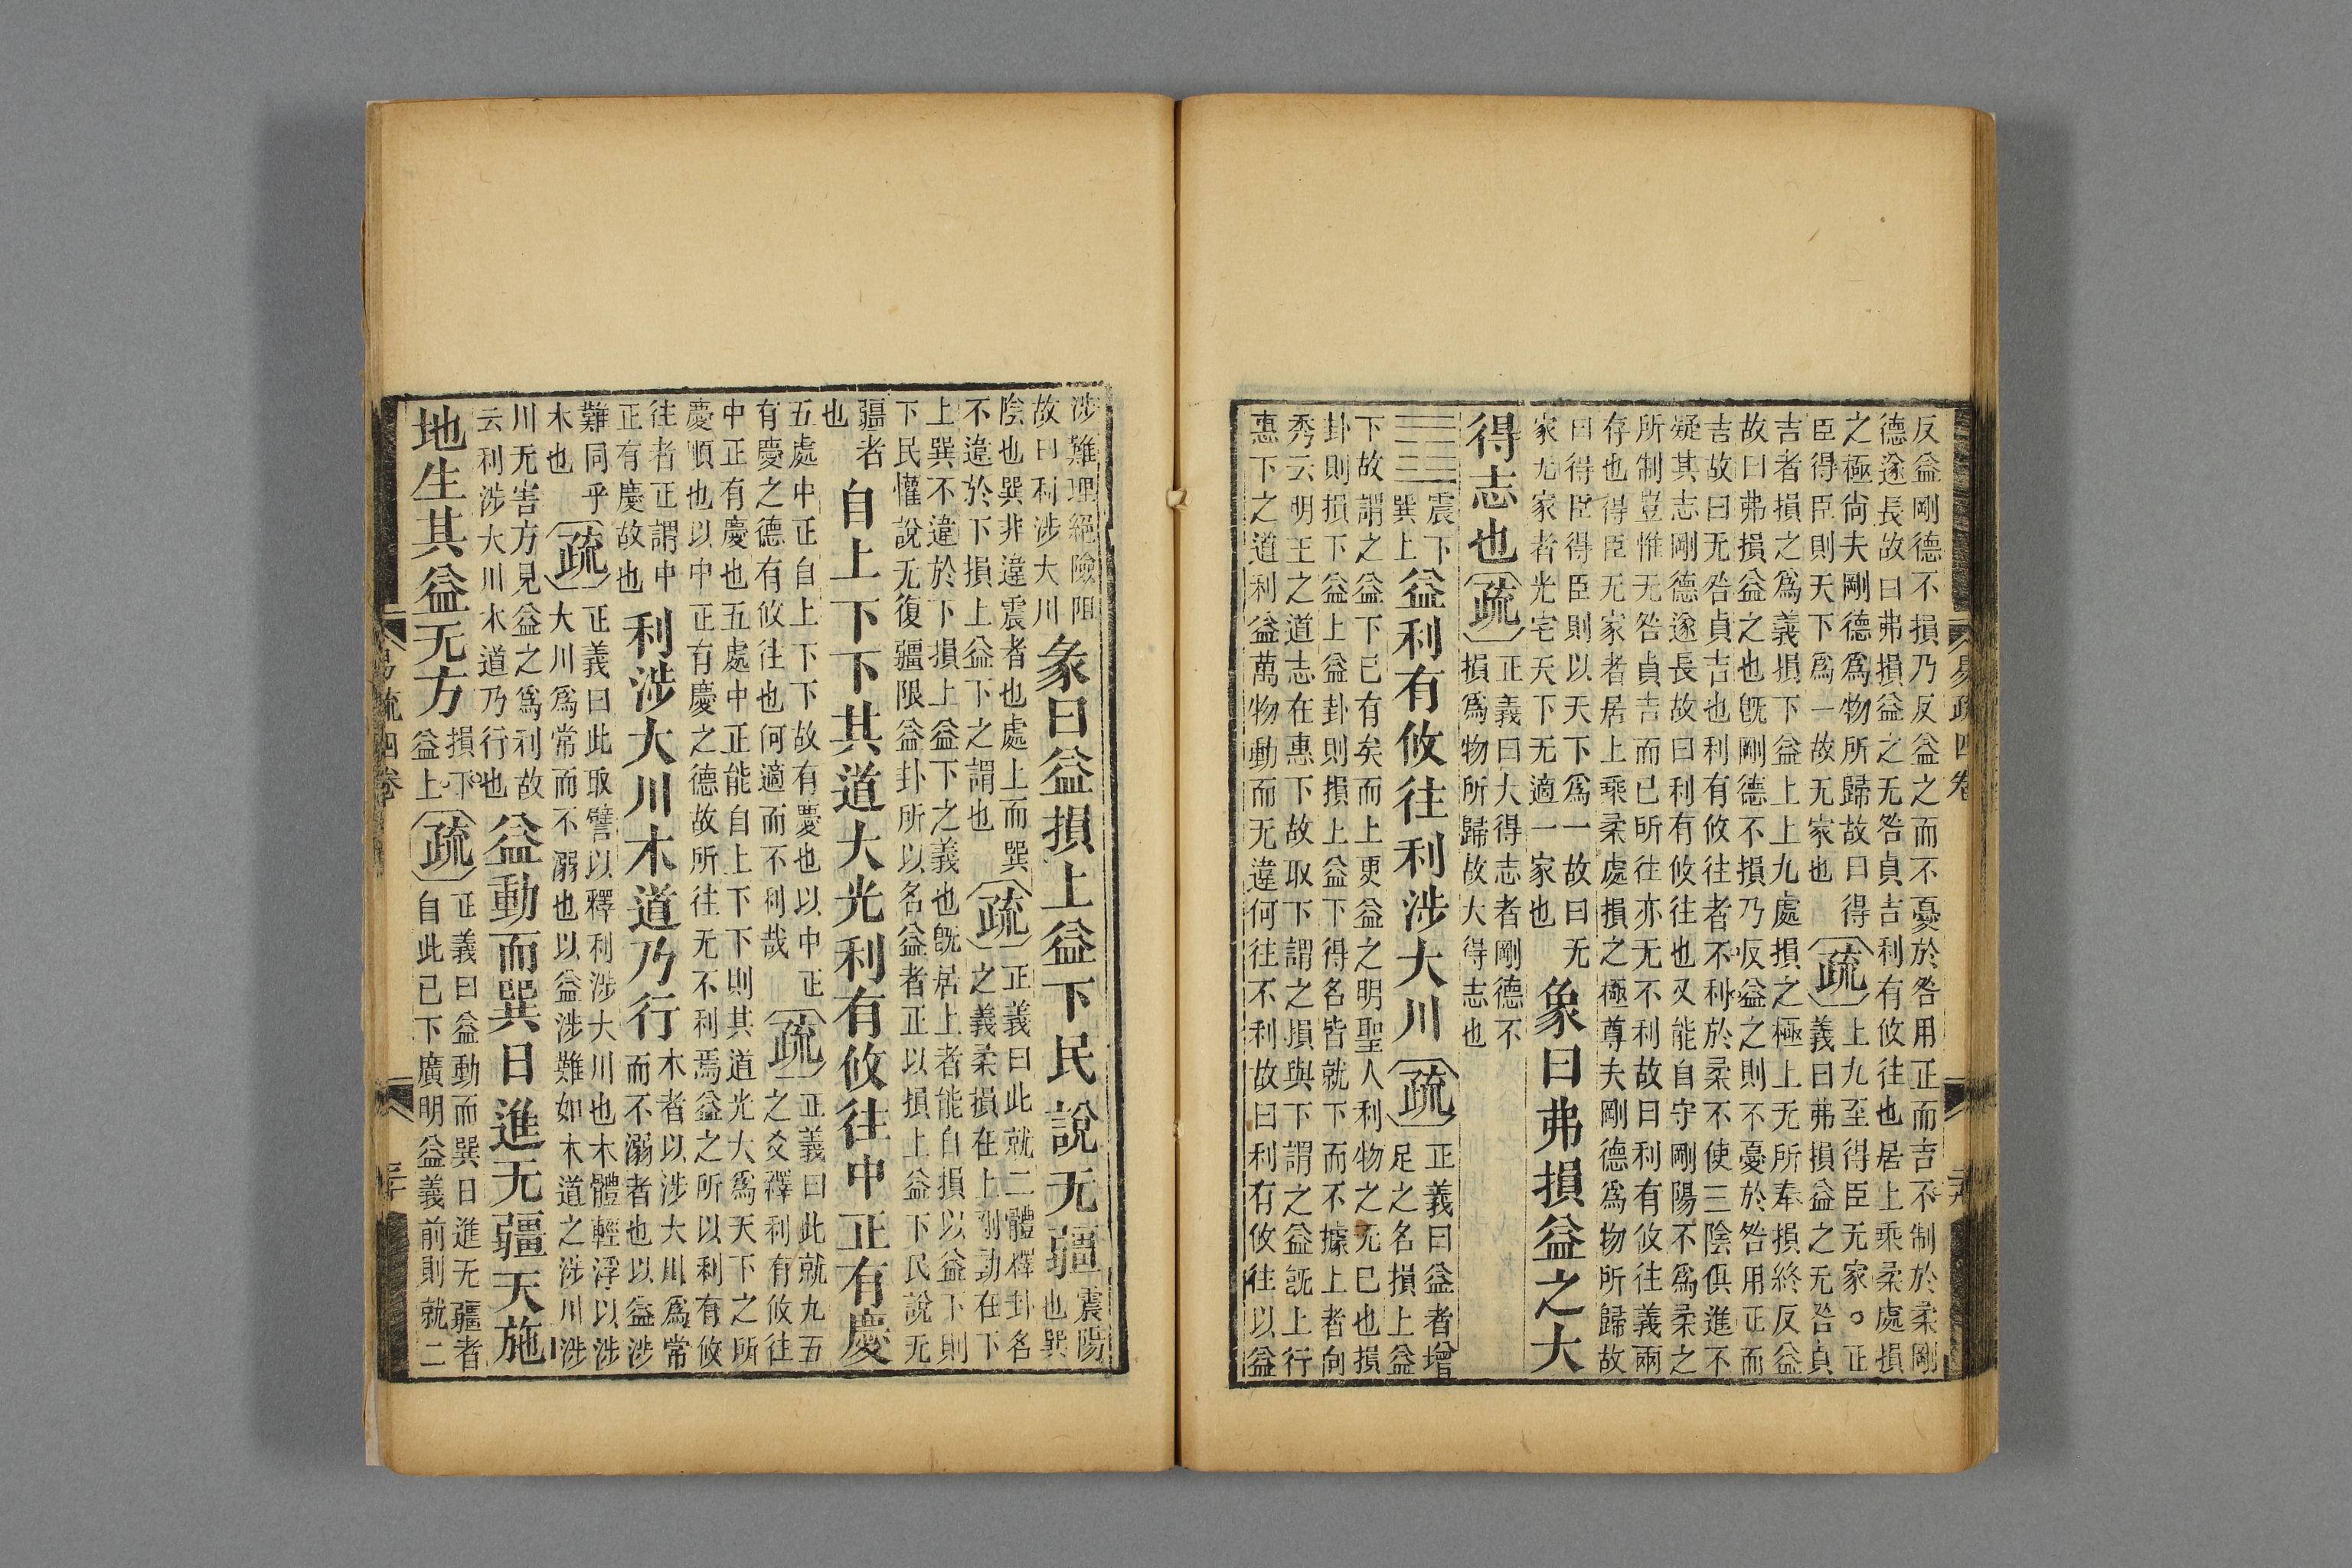 反益剛德不損乃反益之而不憂於咎用正而吉不制於柔剛
德遂長故曰弗損益之无咎貞吉利有攸往也居上乘柔處損
之極尚夫剛德爲物所歸故曰得
臣得臣則天下爲一故无家也
疏
上九至得臣无家○正
義曰弗損益之无咎貞
吉者損之爲義損下益上上九處損之極上无所奉損終反益
故曰弗損益之也旣剛德不損乃反益之則不憂於咎用正而
吉故曰无咎貞吉也利有攸往者不利於柔不使三陰俱進不
疑其志剛德遂長故曰利有攸往也又能自守剛陽不爲柔之
所制豈惟无咎貞吉而已所往亦无不利故曰利有攸往義兩
存也得臣无家者居上乘柔處損之極尊夫剛德爲物所歸故
曰得臣得臣則以天下爲一故曰无
家无家者光宅天下无適一家也
象曰弗損益之大
得志也
疏
正義曰大得志者剛德不
損爲物所歸故大得志也
䷩
震下
巽上
益利有攸往利涉大川
疏
正義曰益者增
足之名損上益
下故謂之益下已有矣而上更益之明聖人利物之无已也損
卦則損下益上益卦則損上益下得名皆就下而不據上者向
秀云明王之道志在惠下故取下謂之損與下謂之益旣上行
惠下之道利益萬物動而无違何往不利故曰利有攸往以益
涉難理絕險阻
故曰利涉大川
彖曰益損上益下民說无疆
震陽
也巽
陰也巽非違震者也處上而巽
不違於下損上益下之謂也
疏
正義曰此就二體釋卦名
之義柔損在上剛動在下
上巽不違於下損上益下之義也旣居上者能自損以益下則
下民懽說无復疆限益卦所以名益者正以損上益下民說无
疆者
也
自上下下其道大光利有攸往中正有慶
五處中正自上下下故有慶也以中正
有慶之德有攸往也何適而不利哉
疏
正義曰此就九五
之爻釋利有攸往
中正有慶也五處中正能自上下下則其道光大爲天下之所
慶順也以中正有慶之德故所往无不利焉益之所以利有攸
往者正謂中
正有慶故也
利涉大川木道乃行
木者以涉大川爲常
而不溺者也以益涉
難同乎
木也
疏
正義曰此取譬以釋利涉大川也木體輕浮以涉
大川爲常而不溺也以益涉難如木道之涉川涉
川无害方見益之爲利故
云利涉大川木道乃行也
益動而巽日進无疆天施
地生其益无方
損下
益上
疏
正義曰益動而巽日進无疆者
自此已下廣明益義前則就二
易疏四卷
三十